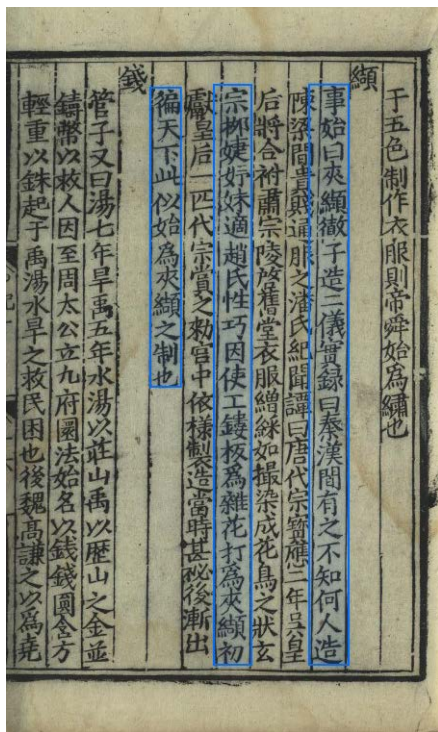 于五色制作衣服則帝舜始為繡也
纈
事始曰夾纈徵子造二儀實録曰秦漢間有之不知何人造
陳梁間貴賎通服之潘氏紀聞譚曰唐代宗寳應二年吴皇
后將合祔肅宗陵啓舊堂衣服繒綵如撮染成花鳥之狀玄
宗栁婕妤妹適趙氏性巧因使工鏤板為雜花打為夾纈初
獻皇后一匹代宗賞之勑宫中依様製造當時甚祕後漸出
徧天下此似始為夾纈之制也
錢
管子又曰湯七年旱禹五年水湯以莊山禹以歴山之金並
鑄幣以救人因至周太公立九府圜法始名以錢錢圓含方
輕重以銖起于禹湯水旱之救民困也後魏髙謙之以為堯